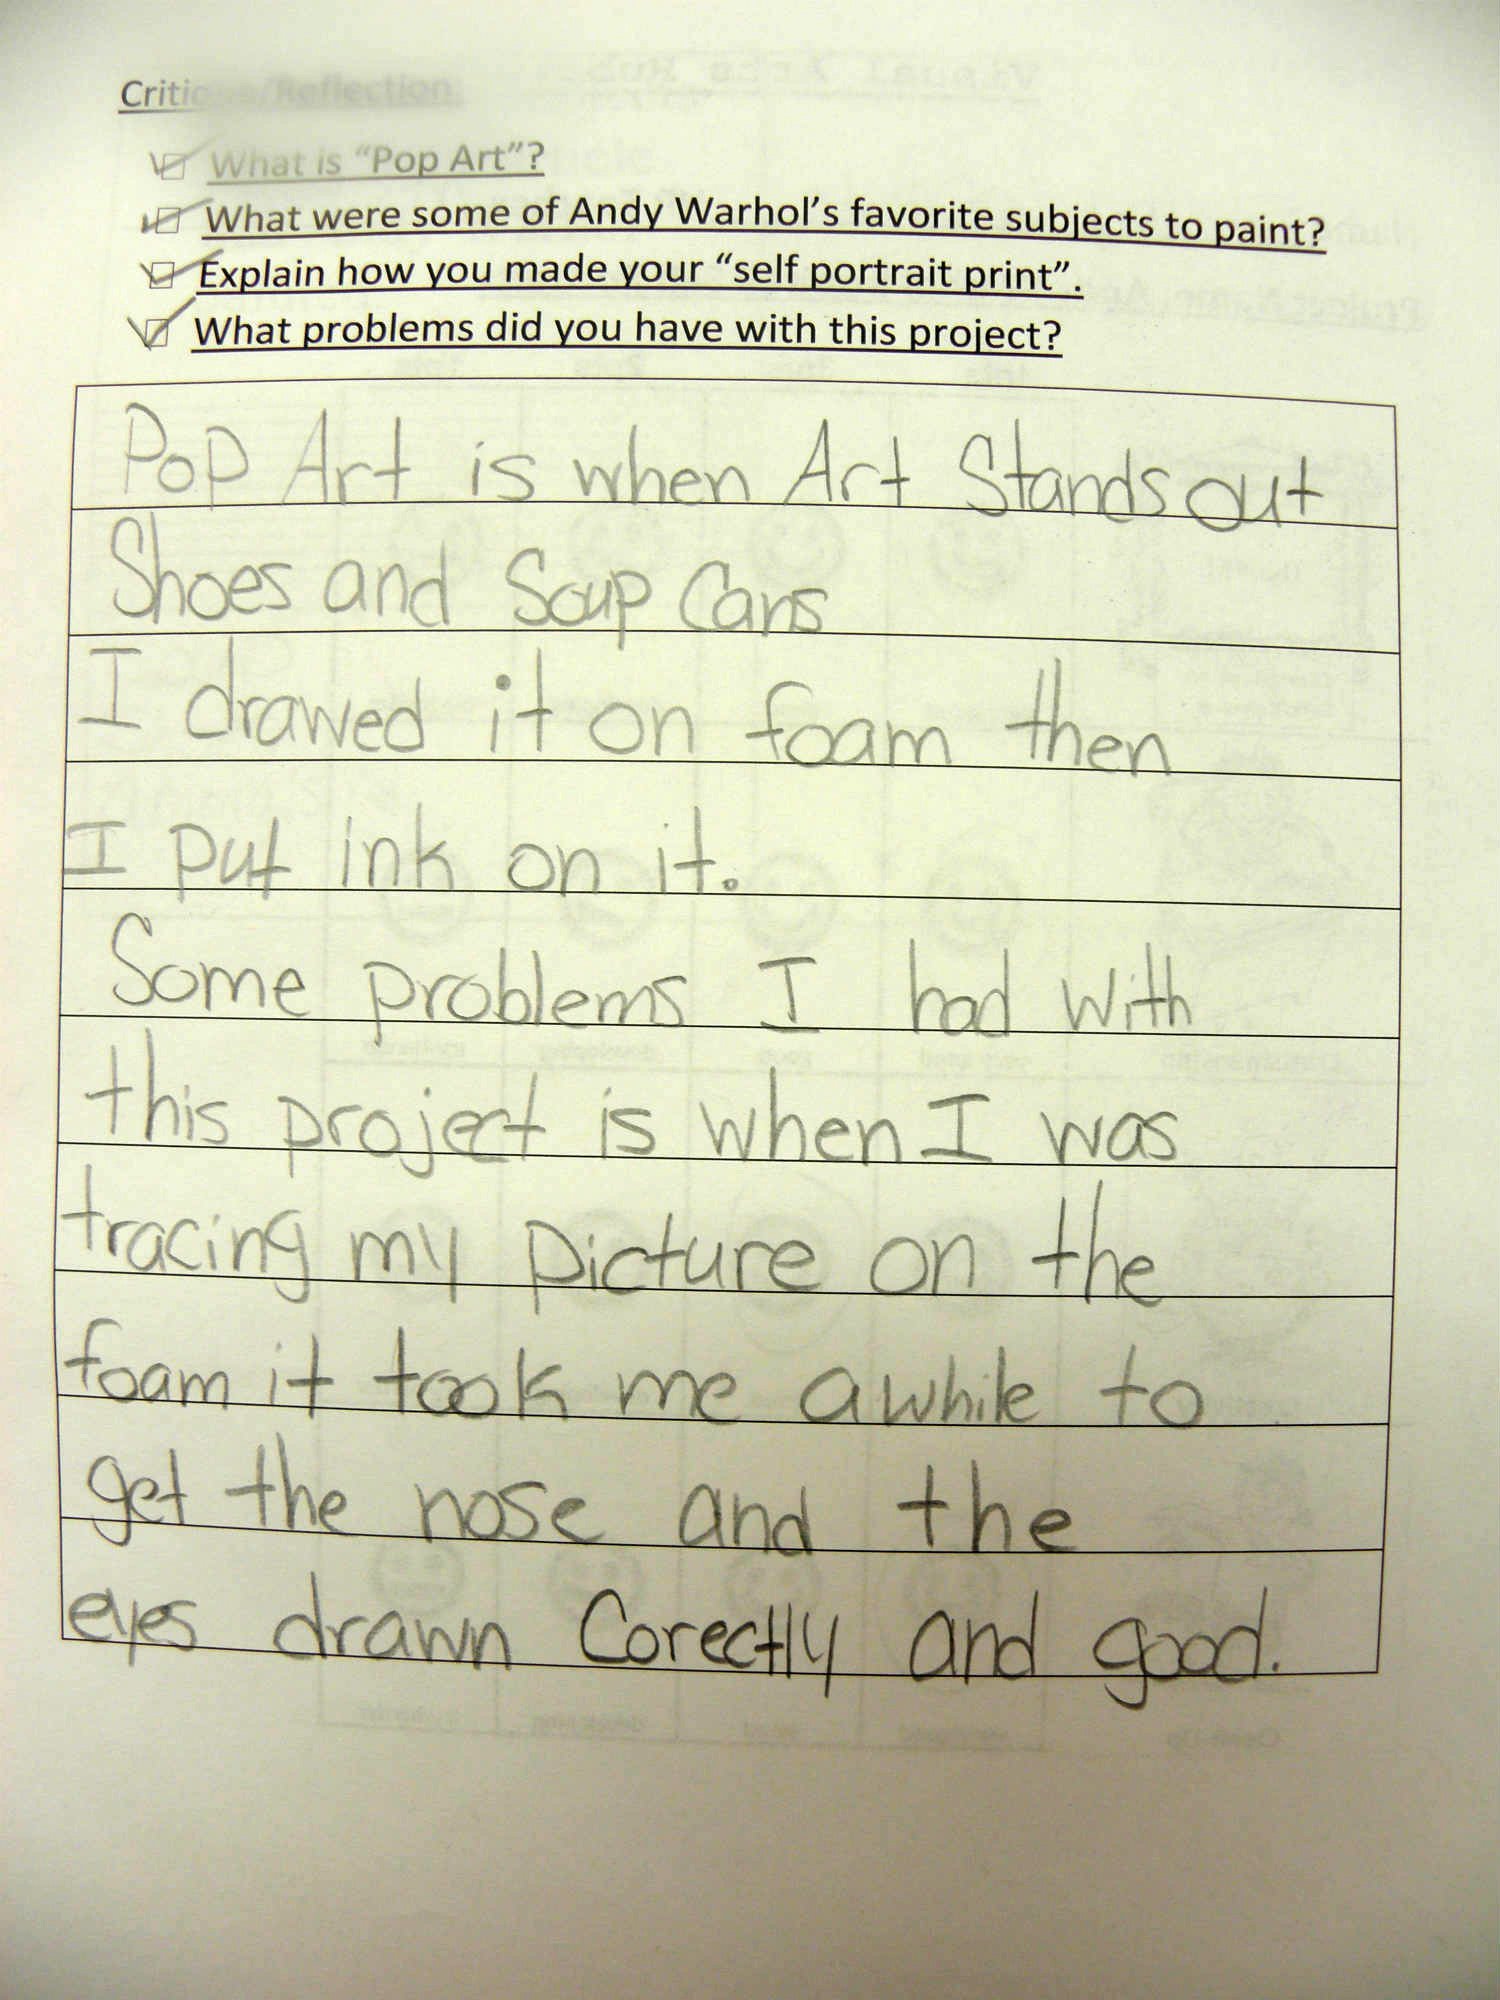 Critique/Reflection
What is “Pop Art”?
What were some of Andy Warhol’s favorite subjects to paint?
Explain how you made your “self portrait print”.
What problems did you have with this project?
Pop Art is when Art Stands out
Shoes and Soup Cans
I drawed it on foam then
I put ink on it.
Some problems I had with
this project is when I was
tracing my picture on the
foam it took me awhile to
get the nose and the
eyes drawn Corectly and good.